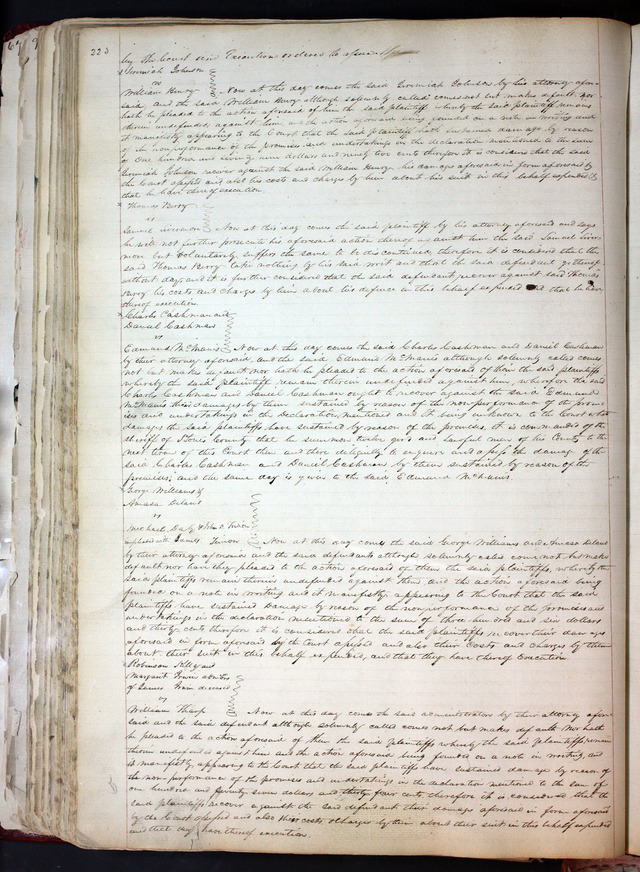 223
by the Court and Execution ordered to issue
Jeremiah Johnson
vs
William Henry Now at this day comes the said Jeremiah Johnson by his attorney afore-
said, and the said William Henry although solemnly called comes not but makes default, nor
hath he pleaded to the action aforesaid of him the said plaintiff whereby the said plaintiff remains
therein undefended against him, and the action aforesaid being founded on a note in writing and
it manifestly appearing to the Court that the said plaintiff hath sustained damage by reason
of the nonperformance of the promises and undertakings in the declaration mentioned to the sum
of One hundred and seventy nine dollars and ninety two cents therefore it is considered that the said
Jeremiah Johnson recover against the said William Henry his damages aforesaid in form aforesaid by
the Court assessed and also his costs and charges by him about his suit in this behalf expended &
that he have thereof execution
Thomas Berry
vs
Samuel Now at this day comes the said plaintiff by his attorney aforesaid and says
he will not further prosecute his aforesaid action thereof against him the said Samuel
but voluntarily suffers the same to be discontinued therefore it is considered that the
said Thomas Berry take nothing by his said writ and that the said defendant go thereof
without day, and it is further considered that the said defendant recover against said Thomas
Berry his costs and charges by him about his defence in this behalf expended and that he have
thereof execution
Charles Cashman and
Daniel Cashman
vs
Edmund McManis Now at this day comes the said Charles Cashman and Daniel Cashman
by their attorney aforesaid, and the said Edmund McManis although solemnly called comes
not but makes default nor hath he pleaded to the action aforesaid of them the said plaintiffs
whereby the said plaintiffs remain therein undefended against him, wherefore the said
Charles Cashman and Daniel Cashman ought to recover against the said Edmund
McManis their damages by them sustained by reason of the nonperformance of the prom-
ises and undertakings in the declaration mentioned and it being unknown to the Court what
damages the said plaintiffs have sustained by reason of the premises, it is commanded the
sheriff of County that he summon twelve good and lawful men of his County to the
next term of this Court then and there diligently to enquire and assess the damage of the
said Charles Cashman and Daniel Cashman by them sustained by reason of the
premises, and the same day is given to the said Edmund McManis
George Williams &
Amasa Delano
vs
Michael Daly & John
impleaded with James Now at this day comes the said George Williams and Amasa Delano
by their attorney aforesaid and the said defendants although solemnly called come not but make
default nor have they pleaded to the action aforesaid of them the said plaintiffs, whereby the
said plaintiffs remain therein undefended against them, and the action aforesaid being
founded on a note in writing and it manifestly appearing to the Court that the said
plaintiffs have sustained Damage by reason of the nonperformance of the promises and
undertakings in the declaration mentioned to the sum of three hundred and six dollars
and thirty cents therefore it is considered that the said plaintiffs recover their damages
aforesaid in form aforesaid by the Court assessed and also their Costs and Charges by them
about their suit in this behalf expended, and that they have thereof Execution
Robinson and
Margaret admrs
of James deceased
vs
William Tharp Now at this day comes the said administrators by their attorney afore-
said and the said defendant although solemnly called comes not but makes default nor hath
he pleaded to the action aforesaid of them the said plaintiffs whereby the said plaintiffs remain
therein undefended against him and the action aforesaid being founded on a note in writing, and
it manifestly appearing to the Court that the said plaintiffs have sustained damage by reason of
the non performance of the promises and undertakings in the declaration mentioned to the sum of
one hundred and seven dollars and thirty four cents therefore it is considered that the
said plaintiffs recover against the said defendant their damages aforesaid in form aforesaid
by the Court assessed and also their costs & charges by them about their suit in this behalf expended
and that they have thereof execution.